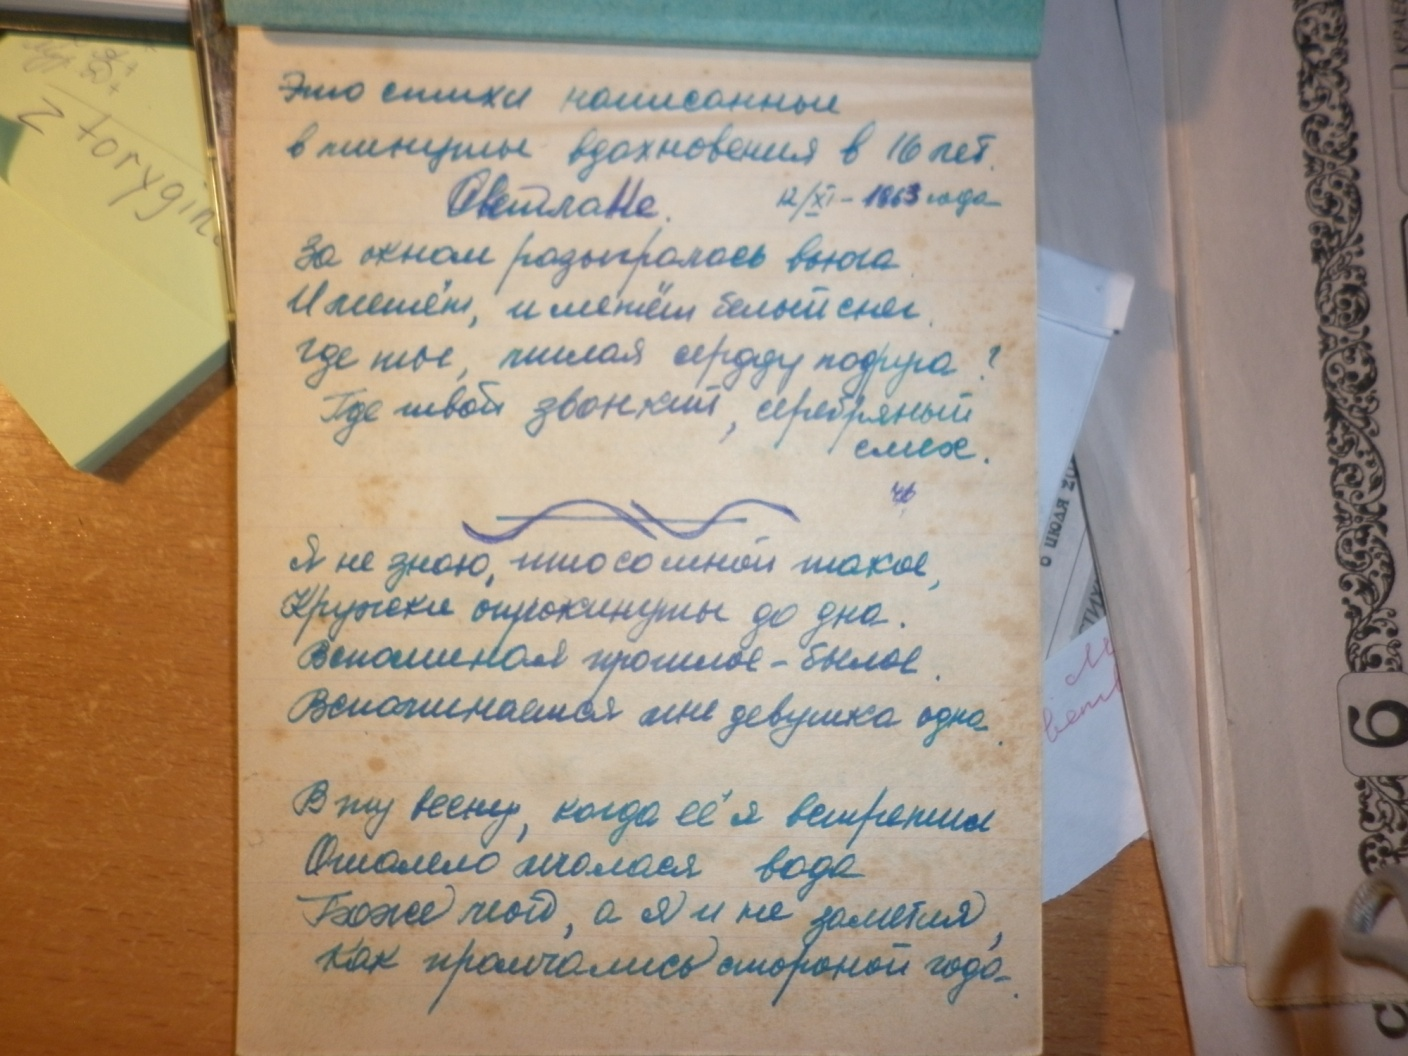 Это стихи написанные
в минуты вдохновения в 16 лет.
Светлане.
12/XI - 1963 года
За окном разыгралась вьюга
И метёт, и метёт белый снег.
Где ты, милая сердцу подруга?
Где твой звонкий, серебряный
смех.
Я не знаю, что со мной такое,
Кружки опрокинуты до дна.
Вспоминая прошлое - былое.
Вспоминается мне девушка одна.
В ту весну, когда её я встретил
Ошалело мчалася вода
Боже мой, а я и не заметил,
Как промчались стороной года.
Z torygin
6